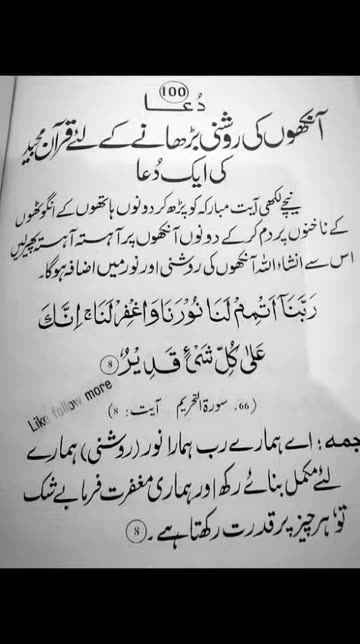 100
دُعا
آنکھوں کی روشنی بڑھانے کے لئے قرآن مجید
کی ایک دُعا
نیچے لکھی آیت مبارکہ کو پڑھ کر دونوں ہاتھوں کے انگوٹھوں
کے ناخنوں پر دم کر کے دونوں آنکھوں پر آہستہ آہستہ پھیرلیں
اس سے انشاء اللہ آنکھوں کی روشنی اور نور میں اضافہ ہوگا۔
رَبَّنَآ اَتْمِمْ لَنَا نُوْرَنَا وَاغْفِرْ لَنَا ۚ اِنَّكَ
عَلٰى كُلِّ شَیْءٍ قَدِیْرٌ ⑧
Like follow more
(66۔ سورۃ التحریم آیت: 8)
جمہ: اے ہمارے رب ہمارا نور (روشنی) ہمارے
لئے مکمل بنائے رکھ اور ہماری مغفرت فرما بے شک
تو ہر چیز پر قدرت رکھتا ہے۔ ⑧